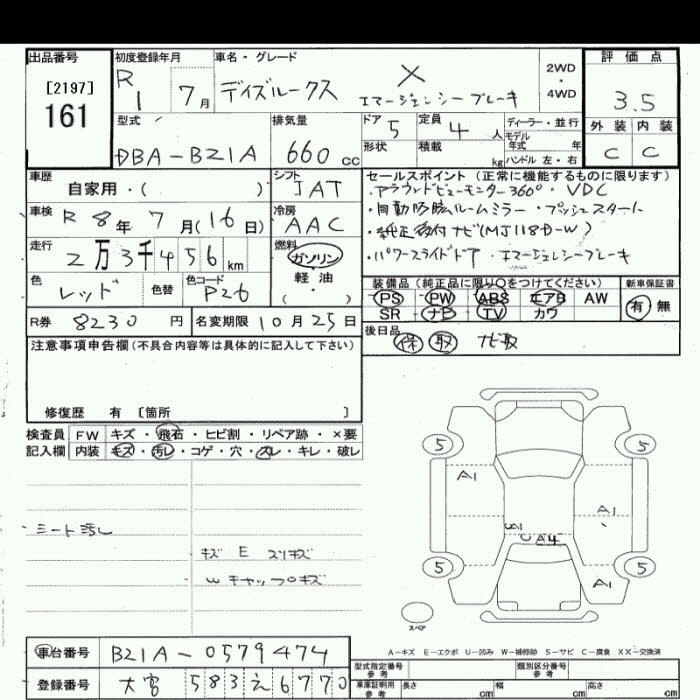 出品番号
[2197]
161
初度登録年月
R1 7月
車名・グレード
デイズルークス X
エマージェンシーブレーキ
2WD
・
4WD
評価点
3.5
外装 内装
C C
型式
DBA-B21A
排気量
660 cc
ドア 5
定員 4 人
ディーラー・並行
モデル
年式 年
形状
積載 kg
ハンドル 左・右
車歴
自家用・( )
シフト
IAT
セールスポイント (正常に機能するものに限ります)
・アラウンドビューモニター360°・VDC
・自動防眩ルームミラー・プッシュスタート
・純正後付ナビ(MJ118D-W)
・パワースライドドア・エマージェンシーブレーキ
車検 R8年7月(16日)
冷房
AAC
走行
2万3千456km
燃料
ガソリン
軽油
・( )
色
レッド
色替
色コード
P26
装備品 (純正品に限り○をつけてください)
PS PW ABS エアB AW
SR ナビ TV カワ
新車保証書
有 無
R券 8230 円
名変期限 10月25日
後日品
保 取 ナビ取
注意事項申告欄 (不具合内容等は具体的に記入して下さい)
修復歴 有 〔箇所 〕
検査員 FW キズ・飛石・ヒビ割・リペア跡・×要
記入欄 内装 キズ・汚レ・コゲ・穴・スレ・キレ・破レ
シート汚レ
キズ E スリキズ
W キャップキズ
5 5
A1
A1
A1
CA4
5 5
A1
スペア
A-キズ E-エクボ U-凹み W-補修跡 S-サビ C-腐食 XX-交換済
車台番号 B21A-0579474
登録番号 大宮 583 え 6770
型式指定番号
参考
類別区分番号
参考
車庫証明用
参考
長さ cm
幅 cm
高さ cm